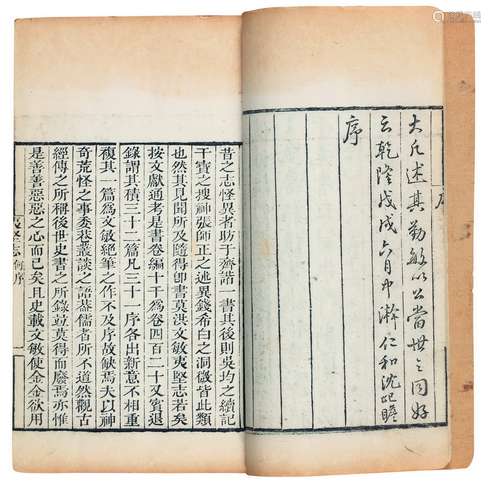 大凡述其勤敏以公當世之同好
云乾隆戊戌六月中澣仁和沈屺瞻
序
昔之志怪異者助于齊諧一書其後則吳均之續記
干寶之搜神張師正之述異錢希白之洞微皆此類
也然其見聞所及隨得卽書莫洪文敏夷堅志若矣
按文獻通考是書卷編十千爲卷四百二十又賓退
錄謂其積三十二篇凡三十一序各出新意不相重
複其一篇爲文敏絕筆之作不及序故缺焉夫以神
奇荒怪之事委巷叢談之語儒者所不道然觀古
經傳之所稱後世史書之所錄竝莫得而廢焉亦惟
是善善惡惡之心而已矣且史載文敏使金金欲用
夷堅志 何序 一